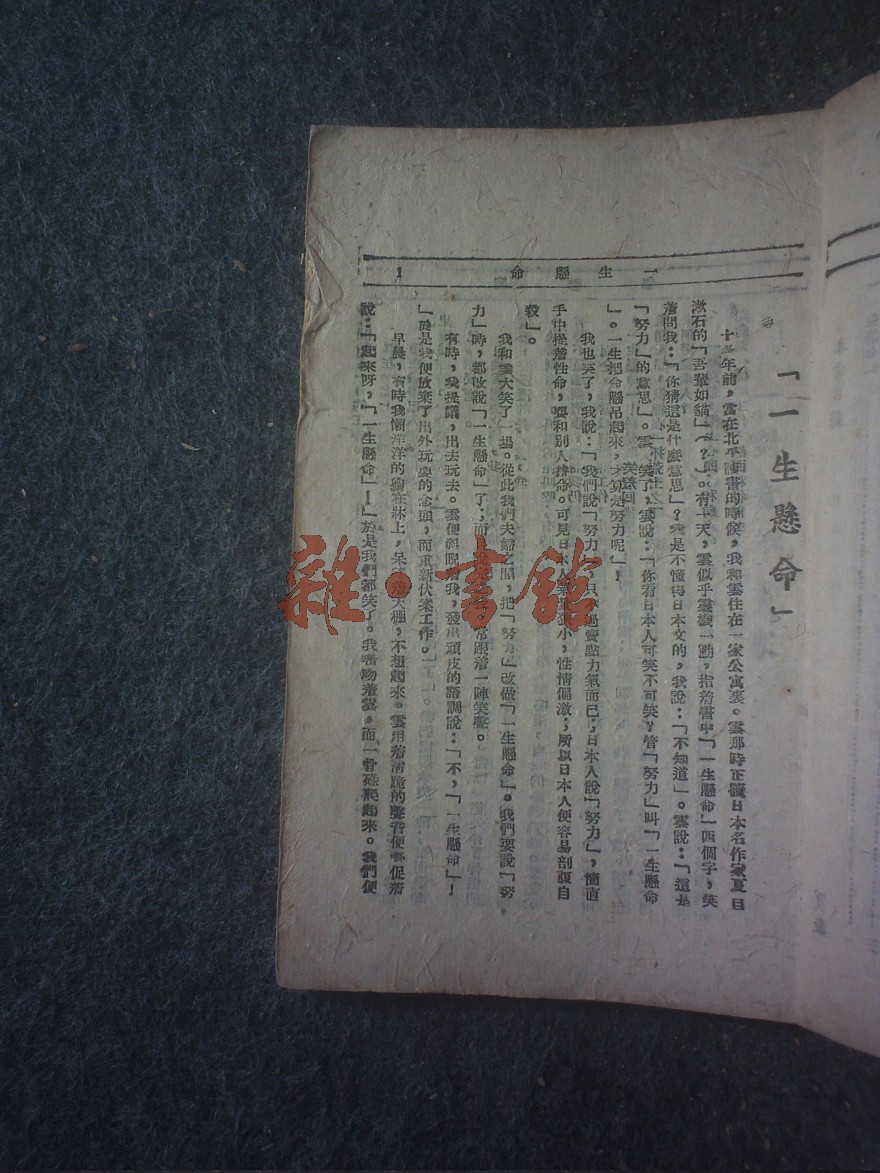 一生懸命 1
「一生懸命」
十年前,當在北平讀書的時候,我和雲住在一家公寓裏。雲那時正讀日本名作家夏目
漱石的「吾輩如貓」(?)。有一天,雲似乎靈機一動,指着書中「一生懸命」四個字,笑
着問我:「你猜這是什麼意思」?我是不懂得日本文的,我說:「不知道」。雲說:「這是
「努力」的意思」。雲笑了,雲說:「你看日本人可笑不可笑?管「努力」叫「一生懸命
」。一生把命懸吊起來,才算是努力呢」!
我也笑了,我說:「我們說「努力」,只不過賣點力氣而已;日本人說「努力」,簡直
手中提着性命,要和別人拚命。可見日本人氣量狹小,性情偏激;所以日本人便容易剖腹自
殺」。
我和雲大笑了一場。從此我們夫婦之間,把「努力」改做「一生懸命」。我們要說「努
力」時,都改說「一生懸命」了;而且說完之後,常跟着一陣笑聲。
有時,我提議,出去玩去。雲便斜睨着我,發出頑皮的語調說:「不,「一生懸命」!
」於是我便放棄了出外玩耍的念頭,而重新伏案工作。
早晨,有時我懶洋洋的躺在牀上,呆望着天棚,不想起來。雲用着清脆的聲音便督促着
說:「起來呀,「一生懸命」!」於是我們都笑了。我嘴吻着雲,而一骨碌爬起來。我們便
雜·書館